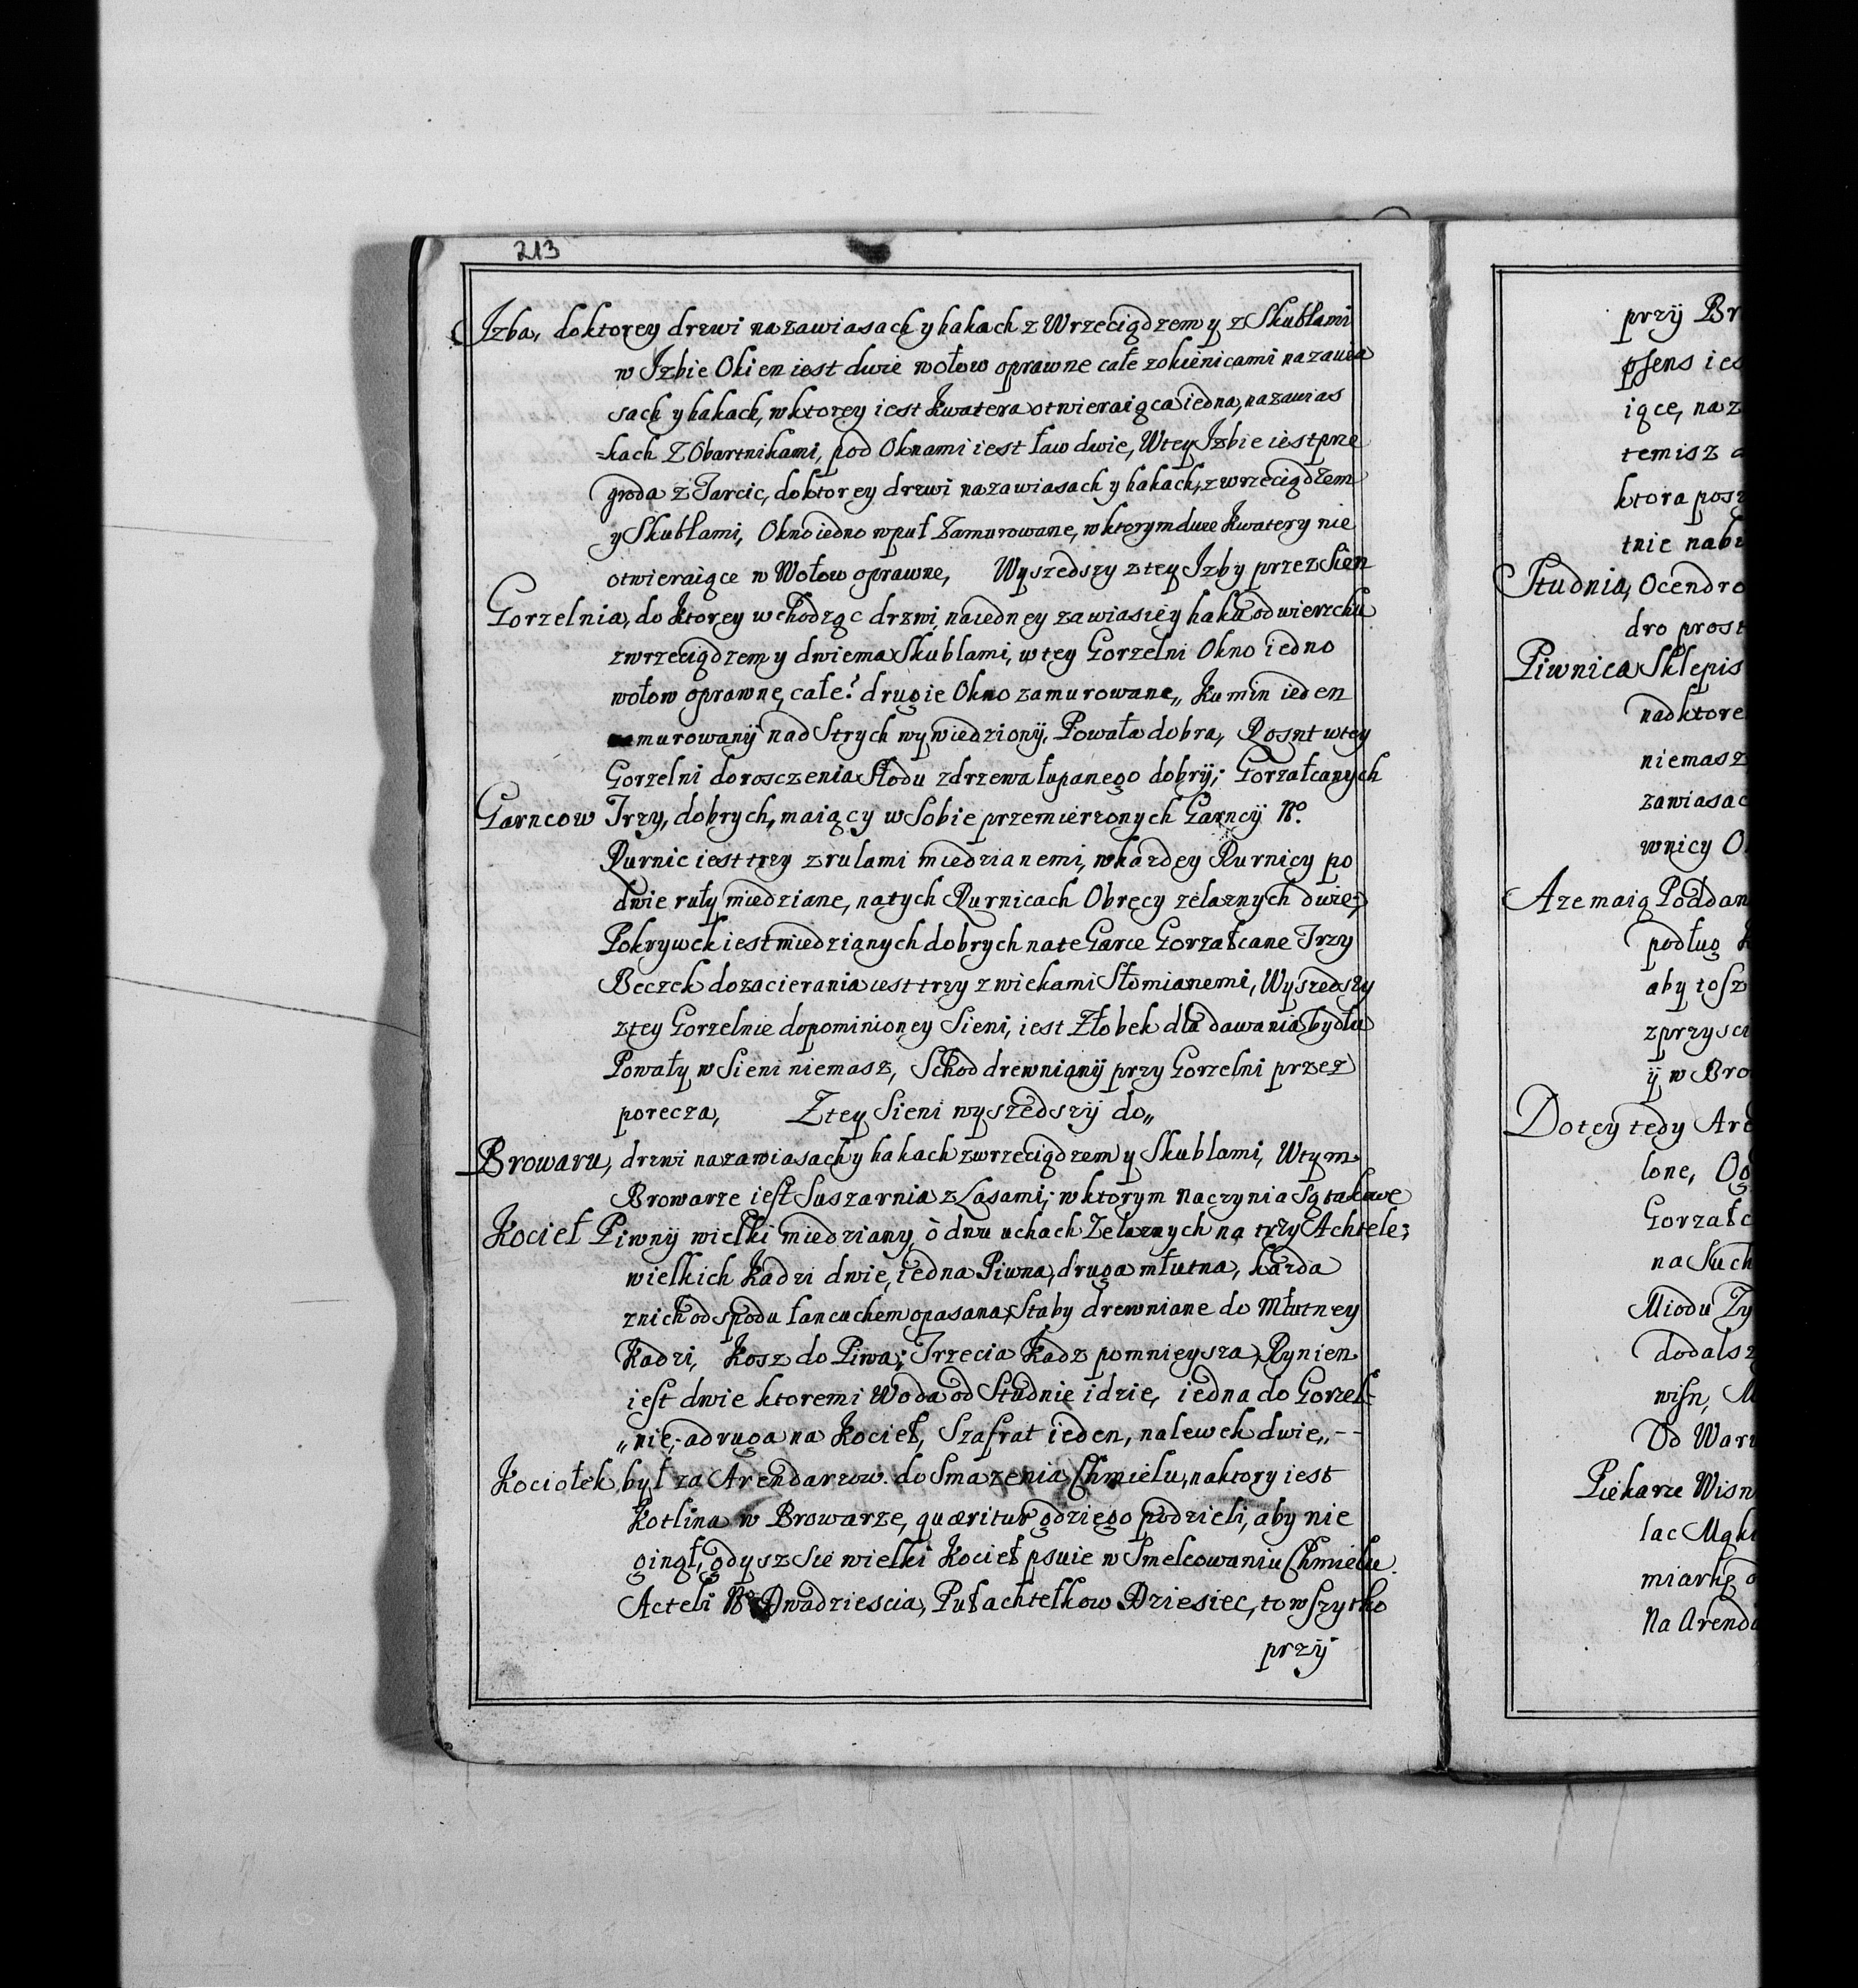 213
Izba, doktorey drzwi nazawiasach y hakach z Wrzeciądzem y z Skublami
w Izbie Okien iest dwie wołow oprawne całe zokienicami nazawia
sach y hakach, wktorey iest Kwatera otwieraiąca iedna, nazawias
=kach Z Obartnikami, pod Oknami iest ław dwie, Wtey Izbie iest prze
groda z Tarcic, doktorey drzwi nazawiasach y hakach, zwrzeciądzem
y Skublami, Okno iedno wpuł Zamurowane, wktorym dwie Kwatery nie
otwieraiące w Wołow oprawne, Wyszedszy ztey Izby przez Sien
Gorzelnia, do ktorey wchodząc drzwi naiedney zawiasie y haku odwierzchu
zwrzeciądzem y dwiema Skublami, wtey Gorzelni Okno iedno
wołow oprawne, całe: drugie Okno zamurowane,, Kumin ieden
murowanÿ nad Strych wywiedzionÿ, Powała dobra, Rosnt wtey
Gorzelni dorosczenia Słodu zdrzewa łupanego dobrÿ; Gorzałcanych
Garncow Trzy, dobrych, maiący wSobie przemierzonych Garncÿ No.
Rurnic iest trzy zrulami miedzianemi, wkazdey Rurnicy po
dwie ruły miedziane, natych Rurnicach Obręcy zelaznych dwie,
Pokrywek iest miedzianych dobrych nate Garce Gorzałcane Trzy
Beczek dozacierania iest trzy z wiekami Słomianemi, Wyszedszy
ztey Gorzelnie dopominioney Sieni, iest Złobek dla dawania bydłu
Powały w Sieni niemasz, Schod drewnianÿ przy Gorzelni przez
porecza, Ztey Sieni wyszedszÿ do,,
Browaru, drzwi nazawiasach y hakach zwrzeciądzem y Skublami, Wtym
Browarze iest Suszarnia z Lasami; wktorym naczynia Są takowe
Kocieł Piwnÿ wielki miedziany, ò dwu uchach Zelaznych na trzy Achtele;
wielkich Kadzi dwie, iedna Piwna, druga młutna, kazda
znich odspodu łancuchem opasana, Staby drewniane do Młutney
Kadzi, Kosz do Piwa; Trzecia Kadz pomnieysza, Rynien
iest dwie ktoremi Woda od Studnie idzie, iedna do Gorzel
,,nie, adruga na Kocieł, Szafrat ieden, nalewek dwie,, --
Kociołek, był za Arendarzow do Smazenia Chmielu, naktory iest
Kotlina w Browarze, quæritur gdziego podzieli, aby nie
ginął, gdysz Sie wielki Kocieł psuie w Smelcowaniu Chmielu.
Acteli No Dwadziescia, Pułachtelkow Dziesiec, to wszytko
przÿ
przÿ Br
psens ies
iące, naz
temisz
ktora posz
tnie nab
Studnia, Ocendro
dro prost
Piwnica Sklepis
nadktore
niemasz
zawiasac
wnicy O
Azemaią Poddan
podług
aby tosz
zprzysci
ÿ w Bro
Dotey tedy Are
lone, Og
Gorzałc
na Such
Miodu Zy
dodalsz
wisn, M
Od War
Piekarze Wisn
lac Mąki
miarkę
Na Arenda